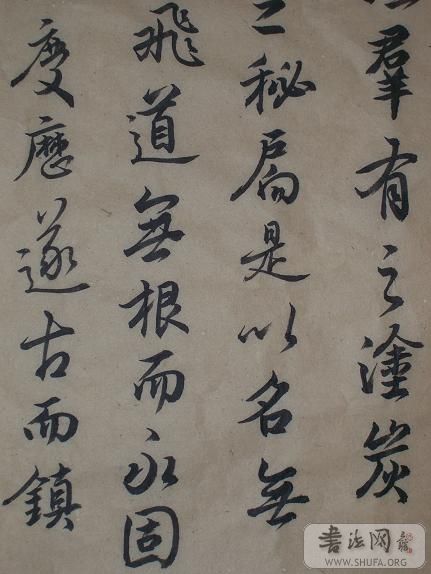 羣有之塗炭
秘扃是以名無
飛道無根而永固
慶歷遂古而鎮
書法网
WWW.SHUFA.ORG